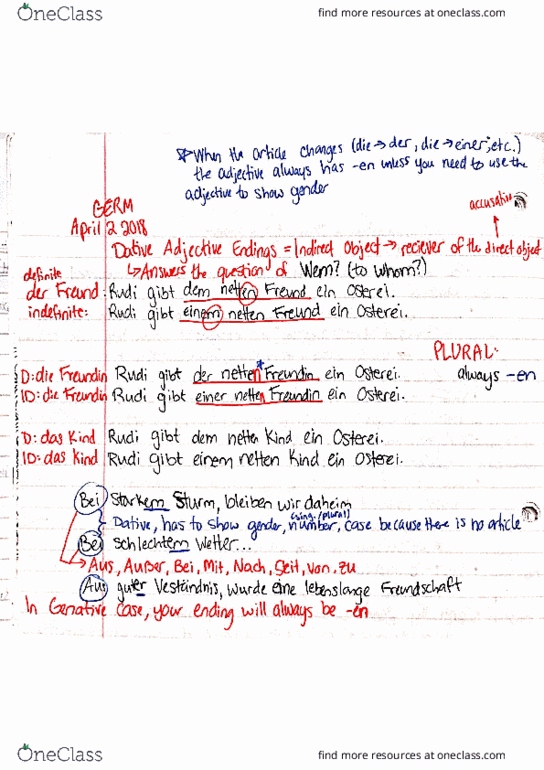 OneClass find more resources at oneclass.com
*When the article changes (die→der, die→einer, etc.)
the adjective always has -en unless you need to use the
adjective to show gender
GERM
April 2 2018
accusative
Dative Adjective Endings = Indirect Object → reciever of the direct object
↳Answers the question of Wem? (to whom?)
definite
der Freund: Rudi gibt dem netten Freund ein Osterei.
indefinite: Rudi gibt einem netten Freund ein Osterei.
PLURAL:
always -en
D: die Freundin Rudi gibt der netten* Freundin ein Osterei.
ID: die Freundin Rudi gibt einer netten Freundin ein Osterei.
D: das Kind Rudi gibt dem netten Kind ein Osterei.
ID: das Kind Rudi gibt einem netten Kind ein Osterei.
Bei starkem Sturm, bleiben wir daheim
(sing./plural)
Dative, has to show gender, number, case because there is no article
Bei schlechtem Wetter...
→Aus, Außer, Bei, Mit, Nach, Seit, Von, Zu
Aus guter Veständnis, wurde eine lebenslange Freundschaft
In Genative case, your ending will always be -en
OneClass find more resources at oneclass.com